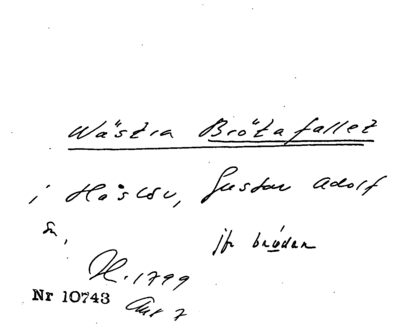 Wästra Brötafallet
i Håslöv, Gustav Adolf
sn,
jfr bråten
H. 1799
Nr 10743
Akt 7